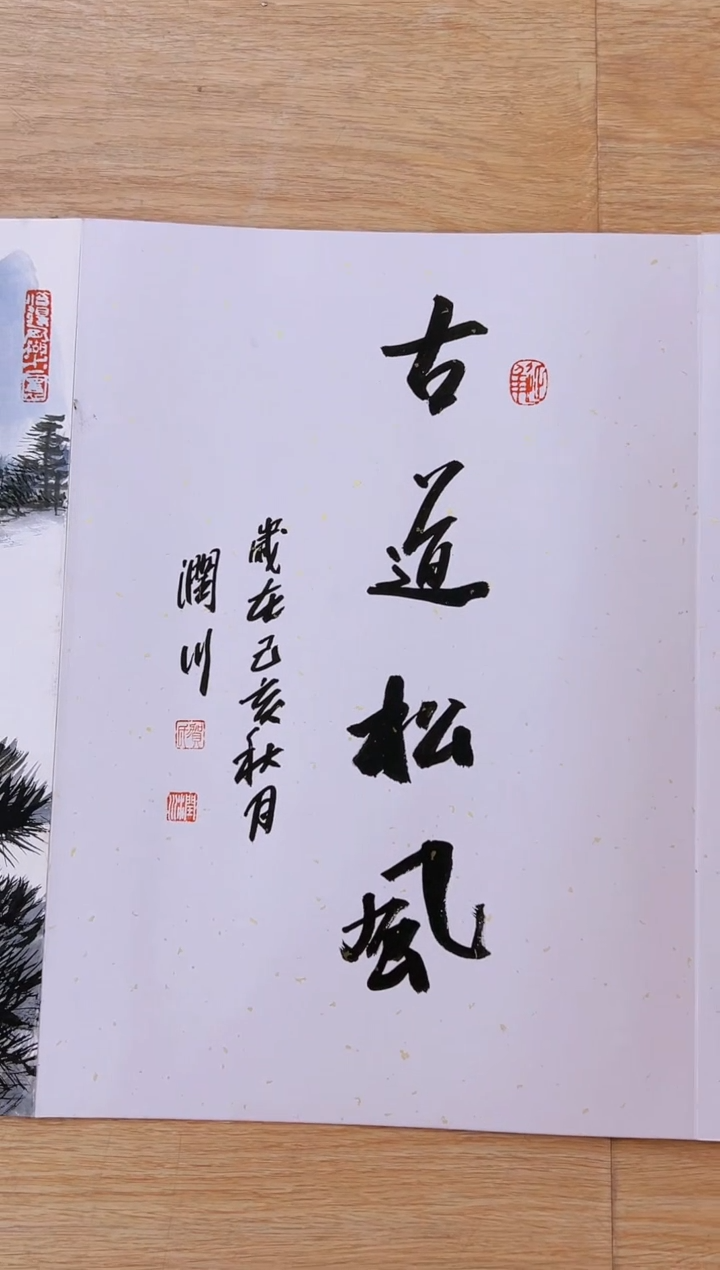 古道松風
歲在己亥秋月
潤川